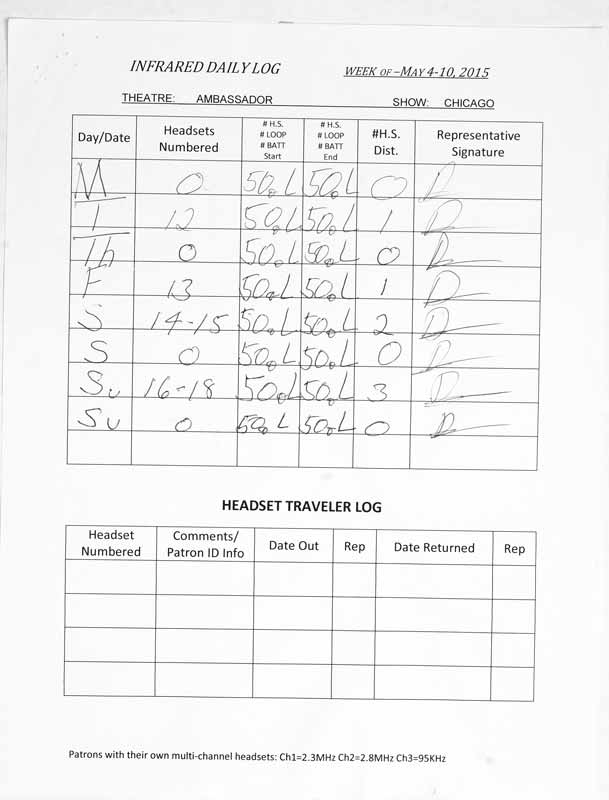 INFRARED DAILY LOG WEEK OF –MAY 4-10, 2015
THEATRE: AMBASSADOR SHOW: CHICAGO
Day/Date Headsets Numbered # H.S. # LOOP # BATT Start # H.S. # LOOP # BATT End #H.S. Dist. Representative Signature
M 0 50 L 50 L 0
T 12 50 L 50 L 1
Th 0 50 L 50 L 0
F 13 50 L 50 L 1
S 14-15 50 L 50 L 2
S 0 50 L 50 L 0
Su 16-18 50 L 50 L 3
Su 0 50 L 50 L 0
HEADSET TRAVELER LOG
Headset Numbered Comments/ Patron ID Info Date Out Rep Date Returned Rep
Patrons with their own multi-channel headsets: Ch1=2.3MHz Ch2=2.8MHz Ch3=95KHz